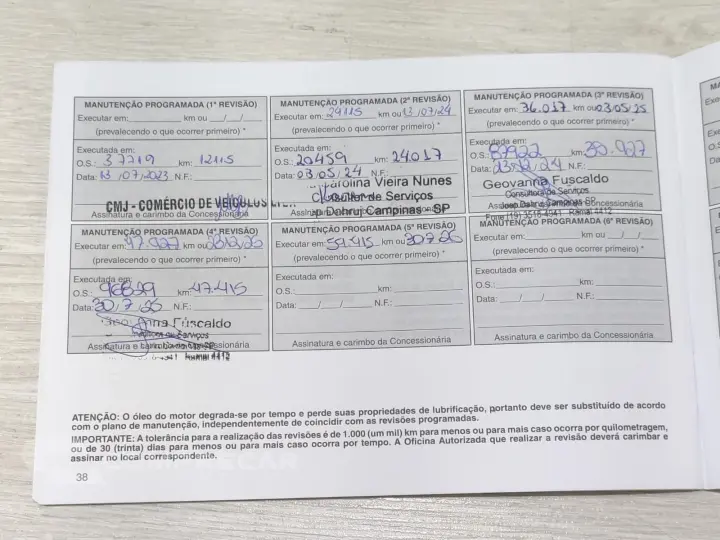 MANUTENÇÃO PROGRAMADA (1ª REVISÃO)
Executar em: km ou / /
(prevalecendo o que ocorrer primeiro) *
Executada em:
O.S.: 37719 km: 12115
Data: 13 / 07 / 2023 N.F.:
CMJ - COMÉRCIO DE VEÍCULOS LTDA.
Assinatura e carimbo da Concessionária
MANUTENÇÃO PROGRAMADA (2ª REVISÃO)
Executar em: 24115 km ou 13/07/24
(prevalecendo o que ocorrer primeiro) *
Executada em:
O.S.: 20459 km: 24.017
Data: 03/05/24 N.F.:
Carolina Vieira Nunes
Consultor de Serviços
Dahruj Campinas - SP
MANUTENÇÃO PROGRAMADA (3ª REVISÃO)
Executar em: 36.017 km ou 03/05/25
(prevalecendo o que ocorrer primeiro) *
Executada em:
O.S.: 87922 km: 35.927
Data: 13/12/24 N.F.:
Geovanna Fuscaldo
Consultora de Serviços
Campinas-SP
Fone (19) Ramal 4412
MANUTENÇÃO PROGRAMADA (4ª REVISÃO)
Executar em: 47.927 km ou
(prevalecendo o que ocorrer primeiro) *
Executada em:
O.S.: 96829 km: 47.415
Data: 30/7/25 N.F.:
Fuscaldo
de Serviços
Assinatura e carimbo da Concessionária
Ramal 4412
MANUTENÇÃO PROGRAMADA (5ª REVISÃO)
Executar em: 59.415 km ou 30/7/26
(prevalecendo o que ocorrer primeiro) *
Executada em:
O.S.: km:
Data: / / N.F.:
Assinatura e carimbo da Concessionária
MANUTENÇÃO PROGRAMADA (6ª REVISÃO)
Executar em: km ou / /
(prevalecendo o que ocorrer primeiro) *
Executada em:
O.S.: km:
Data: / / N.F.:
Assinatura e carimbo da Concessionária
ATENÇÃO: O óleo do motor degrada-se por tempo e perde suas propriedades de lubrificação, portanto deve ser substituído de acordo
com o plano de manutenção, independentemente de coincidir com as revisões programadas.
IMPORTANTE: A tolerância para a realização das revisões é de 1.000 (um mil) km para menos ou para mais caso ocorra por quilometragem,
ou de 30 (trinta) dias para menos ou para mais caso ocorra por tempo. A Oficina Autorizada que realizar a revisão deverá carimbar e
assinar no local correspondente.
38